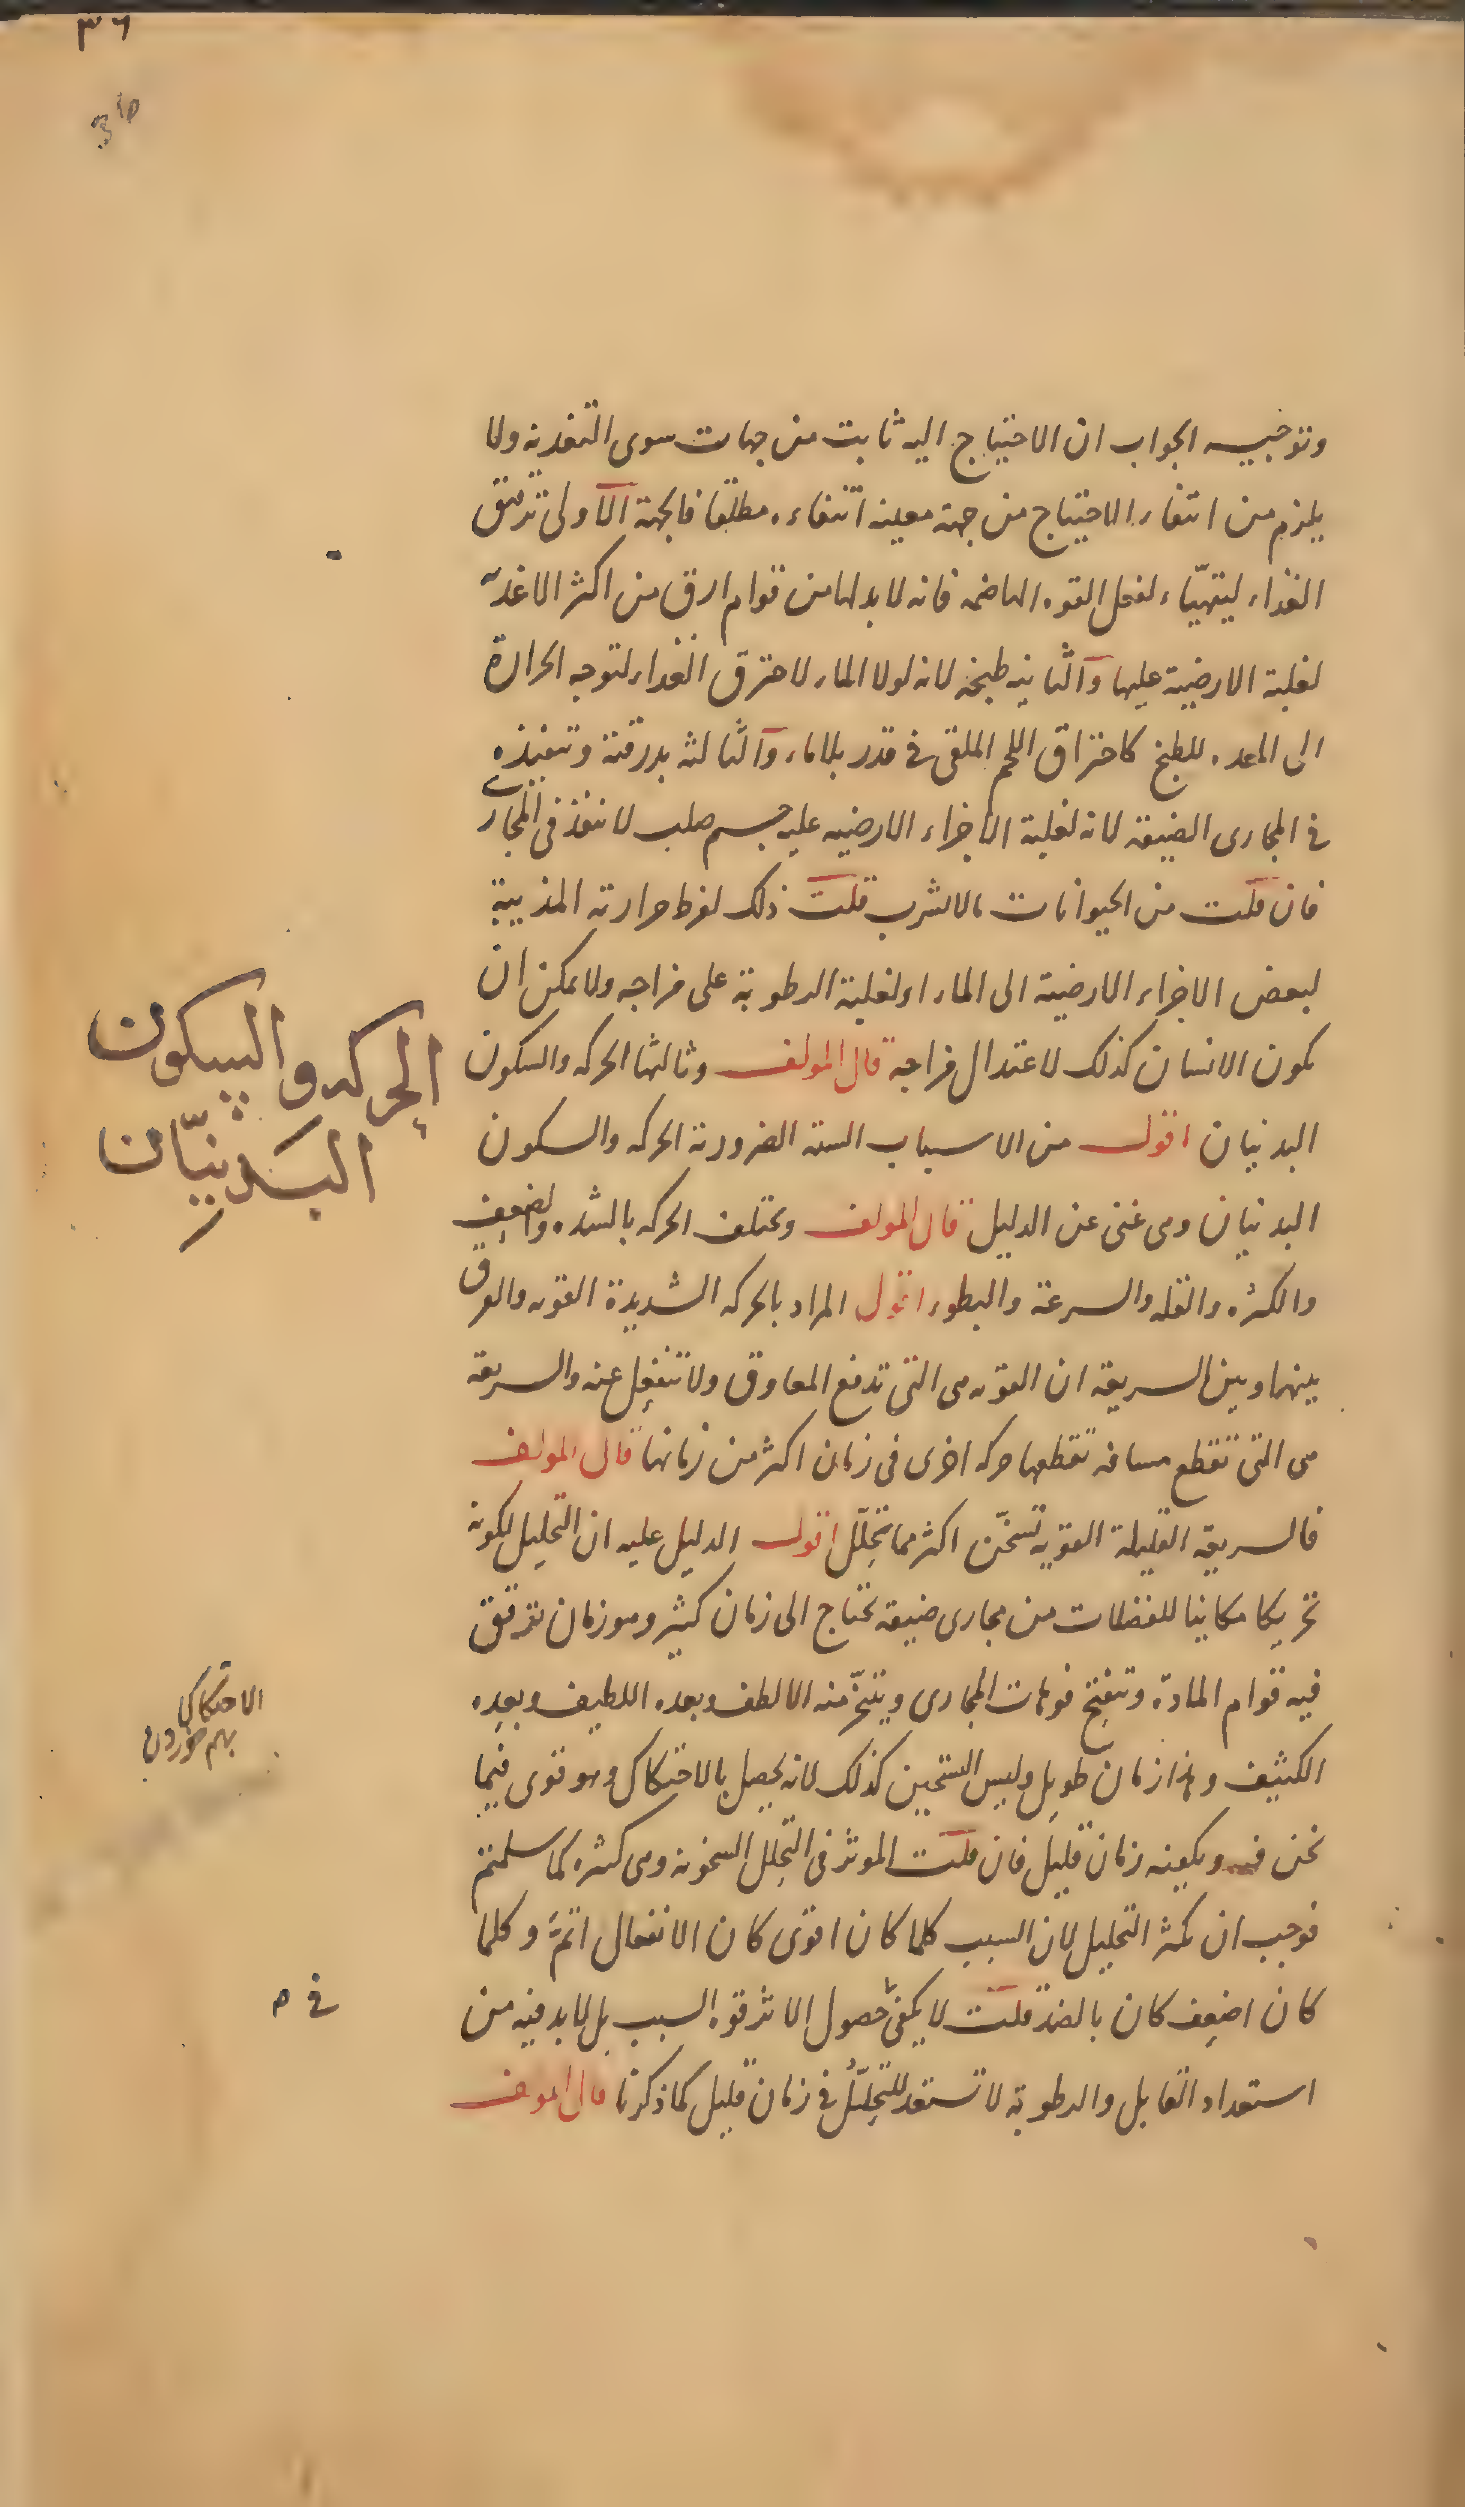 ٣٦
وتوجيه الجواب ان الاحتياج اليه ثابت من جهات سوى التغذية ولا
يلزم من انتفاء الاحتياج من جهة معينه انتفاءه مطلقا فالجهة الاولى ترقيق
الغذاء ليتهيّاء لفعل القوه الهاضمه فانه لا بد لها من قوام ارق من اكثر الاغذية
لغلبة الارضية عليها والثانيه طبخه لانه لولا الماء لاحترق الغذاء لتوجه الحرارة
الى المعده للطبخ كاحتراق اللحم الملقى في قدر بلا ماء والثالثه بدرقته وتنفيذه
في المجارى الضيقه لانه لغلبة الاجزاء الارضيه عليه جسم صلب لا ينفذ في المجارى
فان قلت من الحيوانات ما لا يشرب قلت ذلك لفرط حرارته المذيبة
لبعض الاجزاء الارضية الى الماء او لغلبة الرطوبة على مزاجه ولا يمكن ان
يكون الانسان كذلك لاعتدال مزاجه قال المولف وثالثها الحركه والسكون
البدنيان اقول من الاسباب الستة الضرورية الحركه والسكون
البدنيان وهى غنى عن الدليل قال المولف وتختلف الحركه بالشده والضعف
والكثره والقله والسرعة والبطوء اقول المراد بالحركه الشديدة القويه والفرق
بينهما وبين السريعة ان القويه هى التى تدفع المعاوق ولا تنفعل عنه والسريعة
هى التى تقطع مسافه تقطعها حركه اخرى فى زمان اكثر من زمانها قال المولف
فالسريعة القليلة القوية تسخّن اكثر مما تحلّل اقول الدليل عليه ان التحليل لكونه
تحريكا مكانيا للفضلات من مجارى ضيقه تحتاج الى زمان كثير وهو زمان يترقق
فيه قوام المادة وتنفتح فوهات المجارى ويتبخّر منه الالطف وبعده اللطيف وبعده
الكثيف وهذا زمان طويل وليس التسخين كذلك لانه يحصل بالاحتكاك وهو قوى فيما
نحن فيه ويكفيه زمان قليل فان قلت الموثر فى التحلل السخونه وهى كثيره كما سلمتم
فوجب ان يكثر التحليل لان السبب كلما كان اقوى كان الانفعال اتمّ وكلما
كان اضعف كان بالضد قلت لا يكفى حصول الاثر قوه السبب بل لا بد فيه من
استعداد القابل والرطوبة لا تستعد للتحلّل في زمان قليل كما ذكرنا قال المولف
الحركه والسكون
البدنيّان
الاحتكاك
بهم خوردن
في م